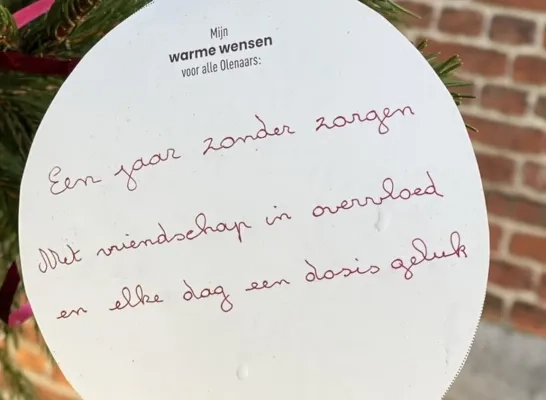 Mijn
warme wensen
voor alle Olenaars:
Een jaar zonder zorgen
Met vriendschap in overvloed
en elke dag een dosis geluk